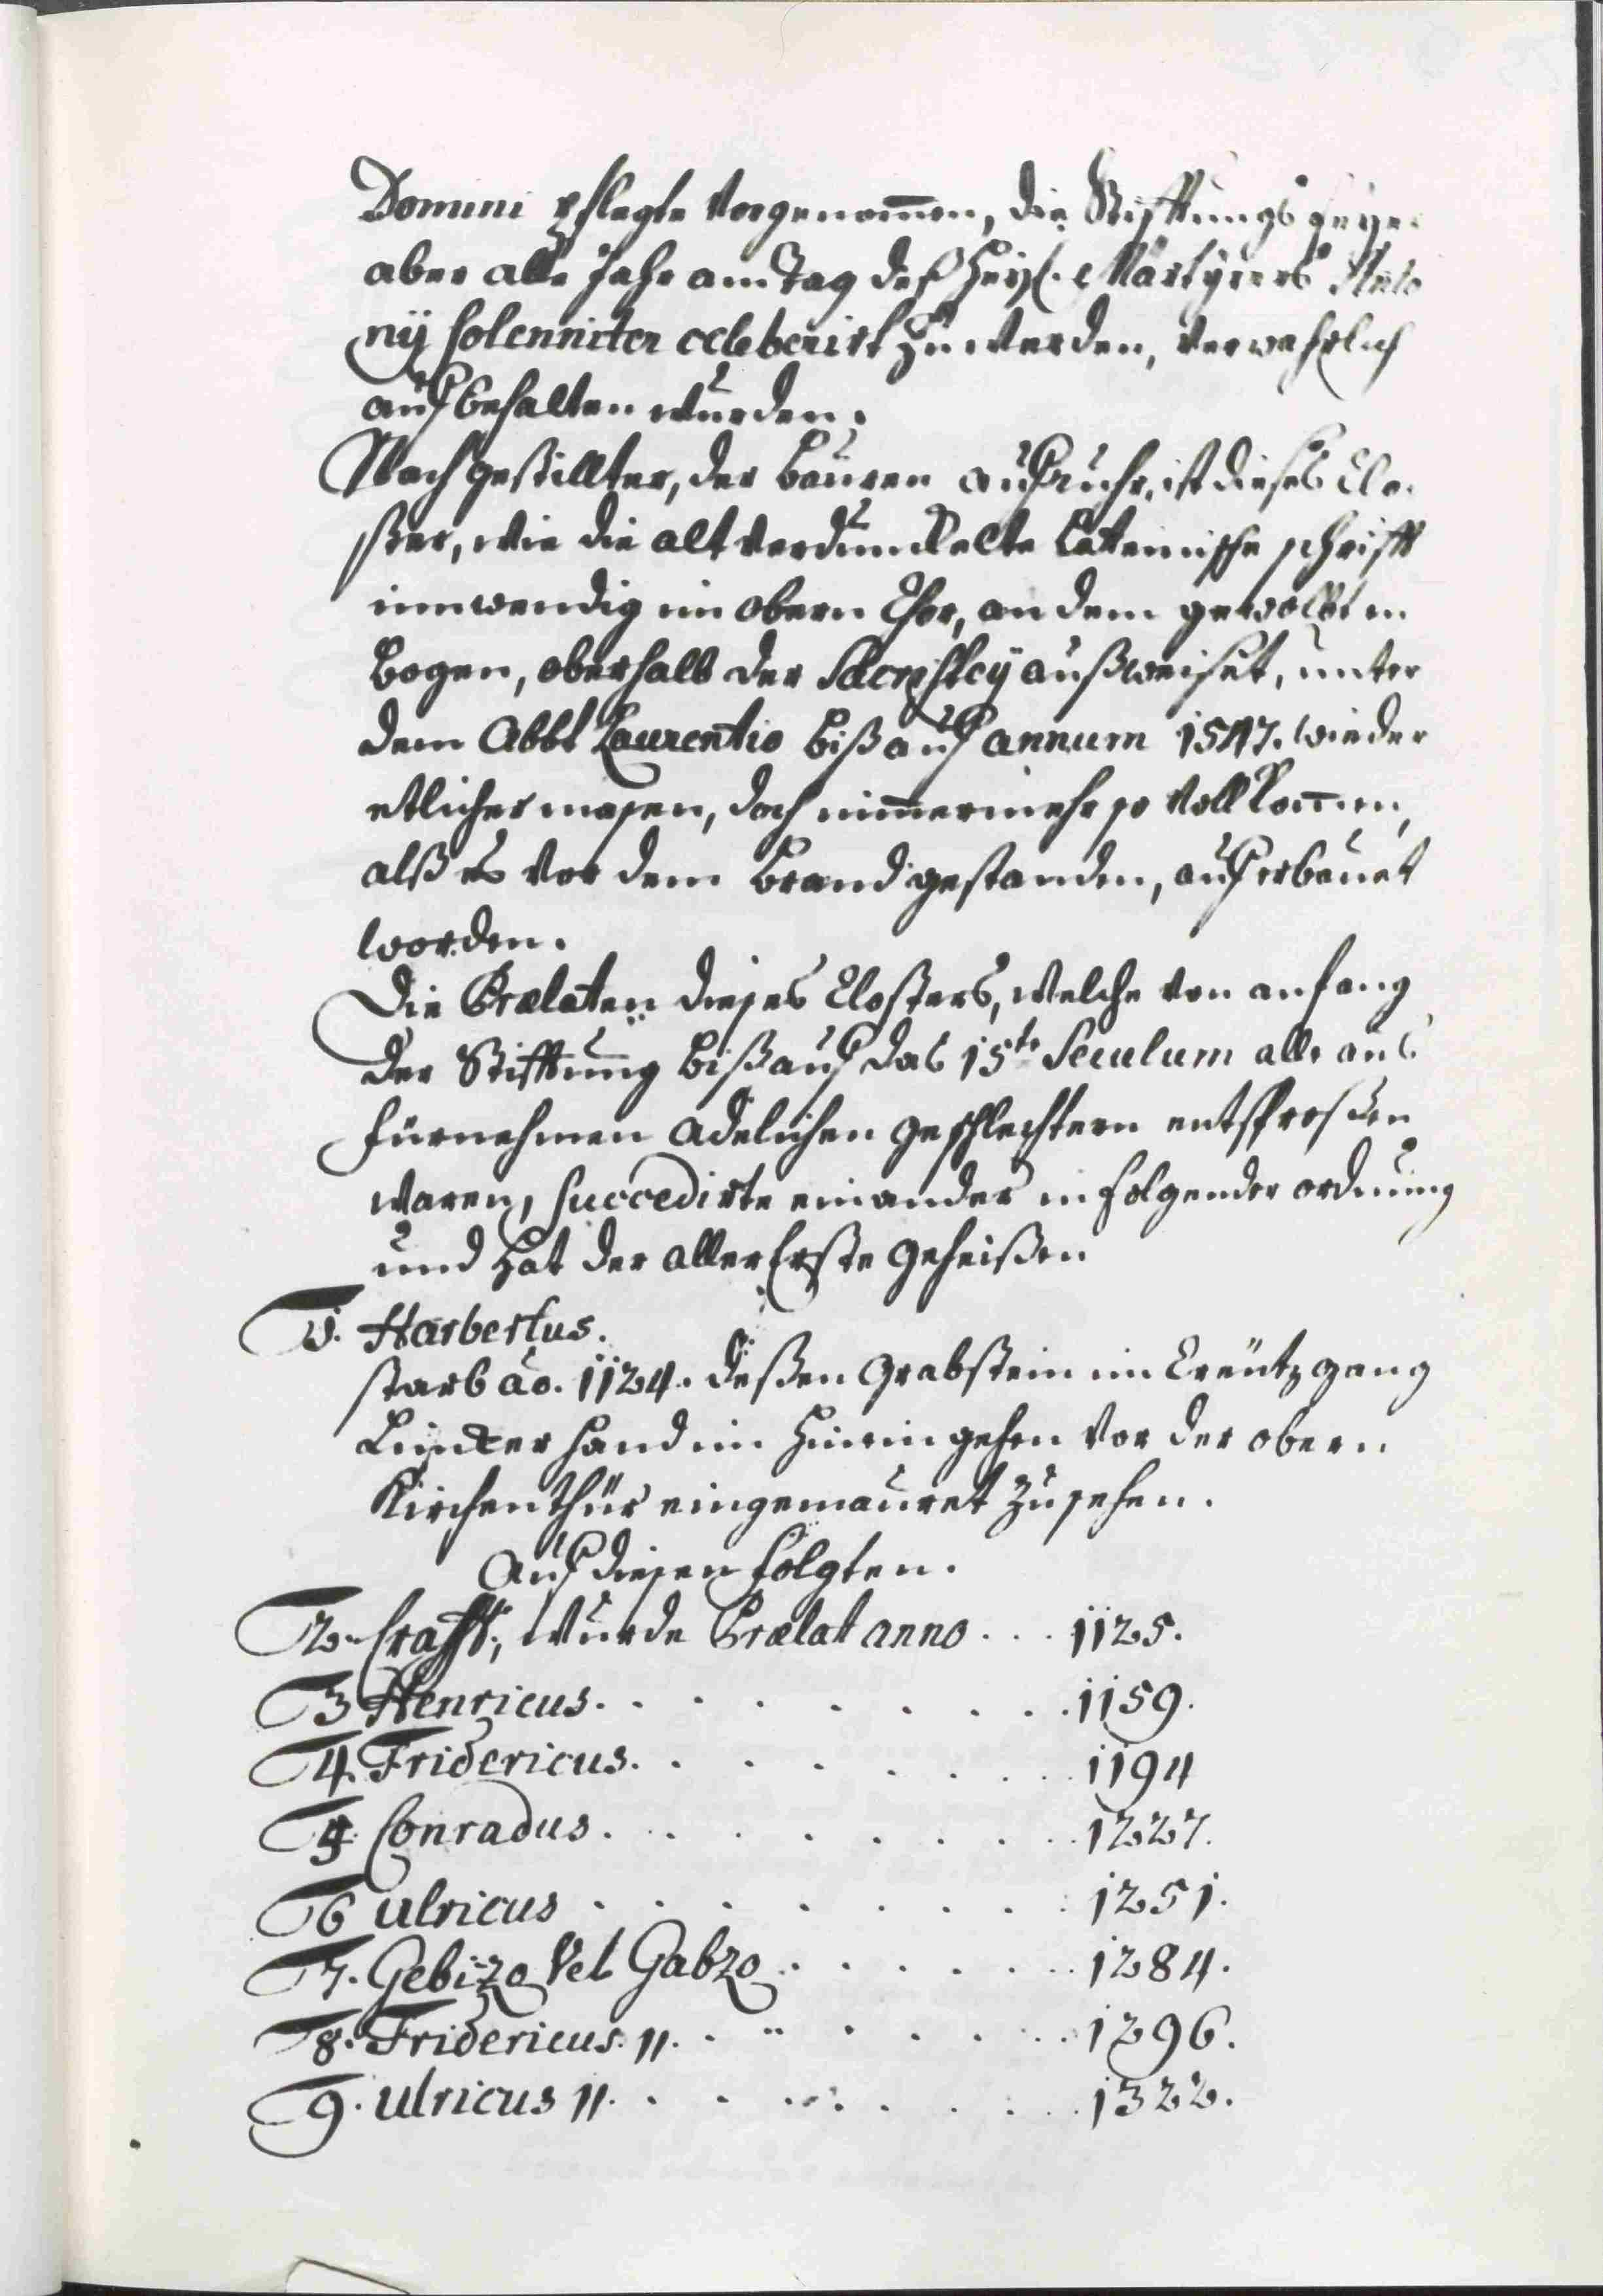 Domini pflegte vorgenom̅en, die Stifftungs feyer
aber alle Jahr am Tag deß Heyl. Märtyrers Anto
nij solenniter celebrirt zu werden, verwahrlich
auf behalten wurden.
Nach gestillter, der Bauren auffruhr, ist dieses Clo-
ster, wie die alt verdunckelte Lateinische schrifft
innwendig im obern Chor, an dem gewölbten
Bogen, oberhalb der Sacristey außweiset, unter
dem Abbt Laurentio biß auf annum 1547. wieder
etlicher masen, doch nim̅ermehr so vollkom̅en,
alß es vor dem Brand gestanden, auferbauet
worden.
Die Prælaten dieses Closters, welche von anfang
der Stifftung biß auf das 15te Seculum alle aus
fürnehmen Adelichen geschlechtern entsproßen
waren, succedirte einander in folgender ordnung
und hat der aller Erste geheißen
1. Harbertus.
starb ao. 1124. deßen Grabstein im Creützgang
Lincker hand im hinein gehen vor der obern
Kirchenthür eingemauret zu sehen.
Auf diesen folgten.
2. Crafft, wurde Prælat anno . . . 1125.
3 Henricus. . . . . . . . . 1159.
4. Fridericus. . . . . . . . 1194
5. Conradus . . . . . . . . 1227.
6 Ulricus . . . . . . . . 1251.
7. Gebizo Vel Gabzo . . . . . . 1284.
8. Fridericus. II. . . . . . . . 1296.
9. Ulricus II. . . . . . . . . 1322.